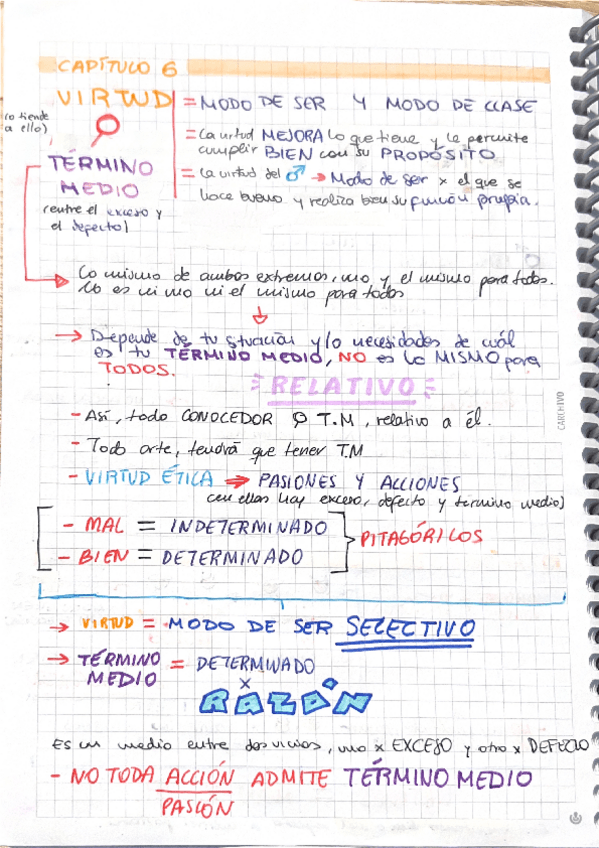 CAPÍTULO 6
VIRTUD = MODO DE SER Y MODO DE CLASE
(o tiende
a ello)
= La virtud MEJORA lo que tiene y le permite
cumplir BIEN con su PROPÓSITO
TÉRMINO
MEDIO
(entre el exceso y
el defecto)
= La virtud del ♂ → Modo de ser x el que se
hace bueno y realiza bien su función propia.
Lo mismo de ambos extremos, uno y el mismo para todos.
No es ni uno ni el mismo para todos
→ Depende de tu situación y/o necesidades de cuál
es tu TÉRMINO MEDIO, NO es lo MISMO para
TODOS.
RELATIVO
- Así, todo CONOCEDOR T.M, relativo a él.
- Todo arte, tendrá que tener T.M
- VIRTUD ÉTICA → PASIONES Y ACCIONES
(en ellas hay exceso, defecto y termino medio)
- MAL = INDETERMINADO
- BIEN = DETERMINADO
PITAGÓRICOS
→ VIRTUD = MODO DE SER SELECTIVO
→ TÉRMINO MEDIO = DETERMINADO
x
RAZÓN
Es un medio entre dos vicios, uno x EXCESO y otro x DEFECTO
- NO TODA ACCIÓN ADMITE TÉRMINO MEDIO
PASIÓN
CARCHIVO